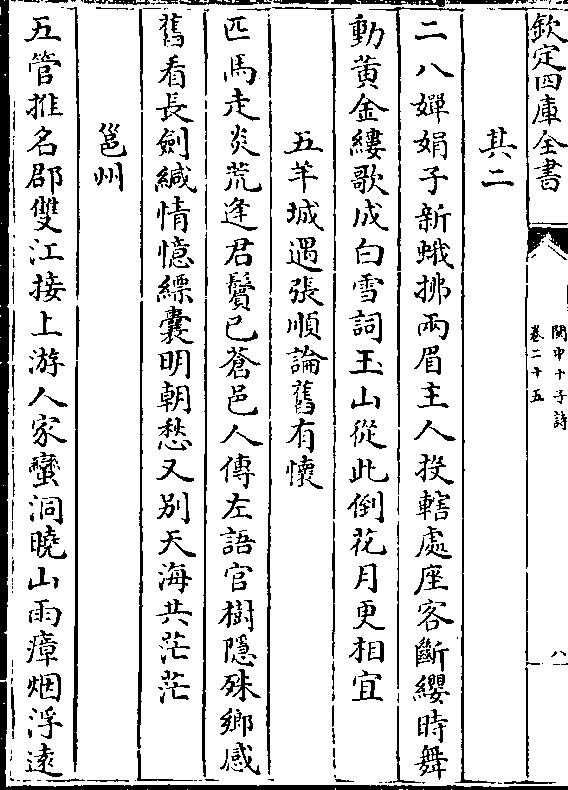 欽定四庫全書
閩中十子詩
卷二十五
八
其二
二八嬋娟子新蛾拂兩眉主人投轄處座客斷纓時舞
動黄金縷歌成白雪詞玉山從此倒花月更相宜
五羊城遇張順論舊有懷
匹馬走炎荒逢君鬢已蒼邑人傳左語官樹隱殊鄉感
舊看長劍緘情憶縹囊明朝愁又别天海共茫茫
邕州
五管推名郡雙江接上游人家蠻洞曉山雨瘴烟浮逺